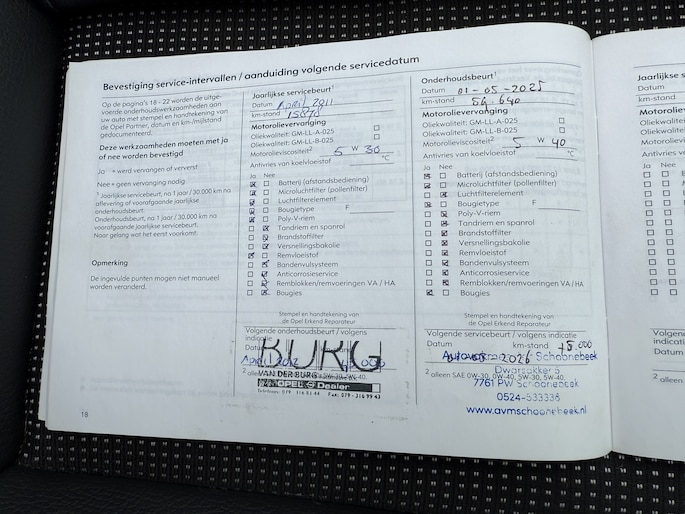 Bevestiging service-intervallen / aanduiding volgende servicedatum
Op de pagina's 18 - 22 worden de uitge-
voerde onderhoudswerkzaamheden aan
uw auto met stempel en handtekening van
de Opel Partner, datum en km-/mijlstand
gedocumenteerd.
Deze werkzaamheden moeten met ja
of nee worden bevestigd
Ja = werd vervangen of ververst
Nee = geen vervanging nodig
1 Jaarlijkse servicebeurt, na 1 jaar / 30.000 km na
aflevering of voorafgaande jaarlijkse
onderhoudsbeurt
Onderhoudsbeurt, na 1 jaar / 30.000 km na
voorafgaande jaarlijkse servicebeurt.
Naar gelang wat het eerst voorkomt.
Opmerking
De ingevulde punten mogen niet manueel
worden veranderd.
18
Jaarlijkse servicebeurt1
Datum April 2011
km-stand
Motorolieverversing
Oliekwaliteit: GM-LL-A-025
Oliekwaliteit: GM-LL-B-025
Motorolieviscositeit2 5 W 30
Antivries van koelvloeistof °C
Ja Nee
Batterij (afstandsbediening)
Microluchtfilter (pollenfilter)
Luchtfilterelement
Bougietype F
Poly-V-riem
Tandriem en spanrol
Brandstoffilter
Versnellingsbakolie
Remvloeistof
Bandenvulsysteem
Anticorrosieservice
Remblokken/remvoeringen VA / HA
Bougies
Stempel en handtekening van
de Opel Erkend Reparateur
Volgende onderhoudsbeurt / volgens
indicatie
April 2012
BURG
VAN DER BURG
2 alleen
OPEL Dealer
Fax: 079 - 316 99 43
Onderhoudsbeurt1
Datum 01-05-2025
km-stand 59.640
Motorolieverversing
Oliekwaliteit: GM-LL-A-025
Oliekwaliteit: GM-LL-B-025
Motorolieviscositeit2 5 W 40
Antivries van koelvloeistof °C
Ja Nee
Batterij (afstandsbediening)
Microluchtfilter (pollenfilter)
Luchtfilterelement
Bougietype F
Poly-V-riem
Tandriem en spanrol
Brandstoffilter
Versnellingsbakolie
Remvloeistof
Bandenvulsysteem
Anticorrosieservice
Remblokken/remvoeringen VA / HA
Bougies
Stempel en handtekening van
de Opel Erkend Reparateur
Volgende servicebeurt / volgens indicatie
Datum km-stand 75.000
2026 Schoonebeek
2 alleen SAE 0W-30, 0W-40, 5W-30, 5W-40.
7761 PW Schoonebeek
0524-533338
www.avmschoonebeek.nl
Jaarlijkse s
Datum
km-stand
Motorolie
Oliekwalite
Oliekwalite
Motorolievi
Antivries va
Ja Nee
Volgend
indicati
Datum
2 alleen